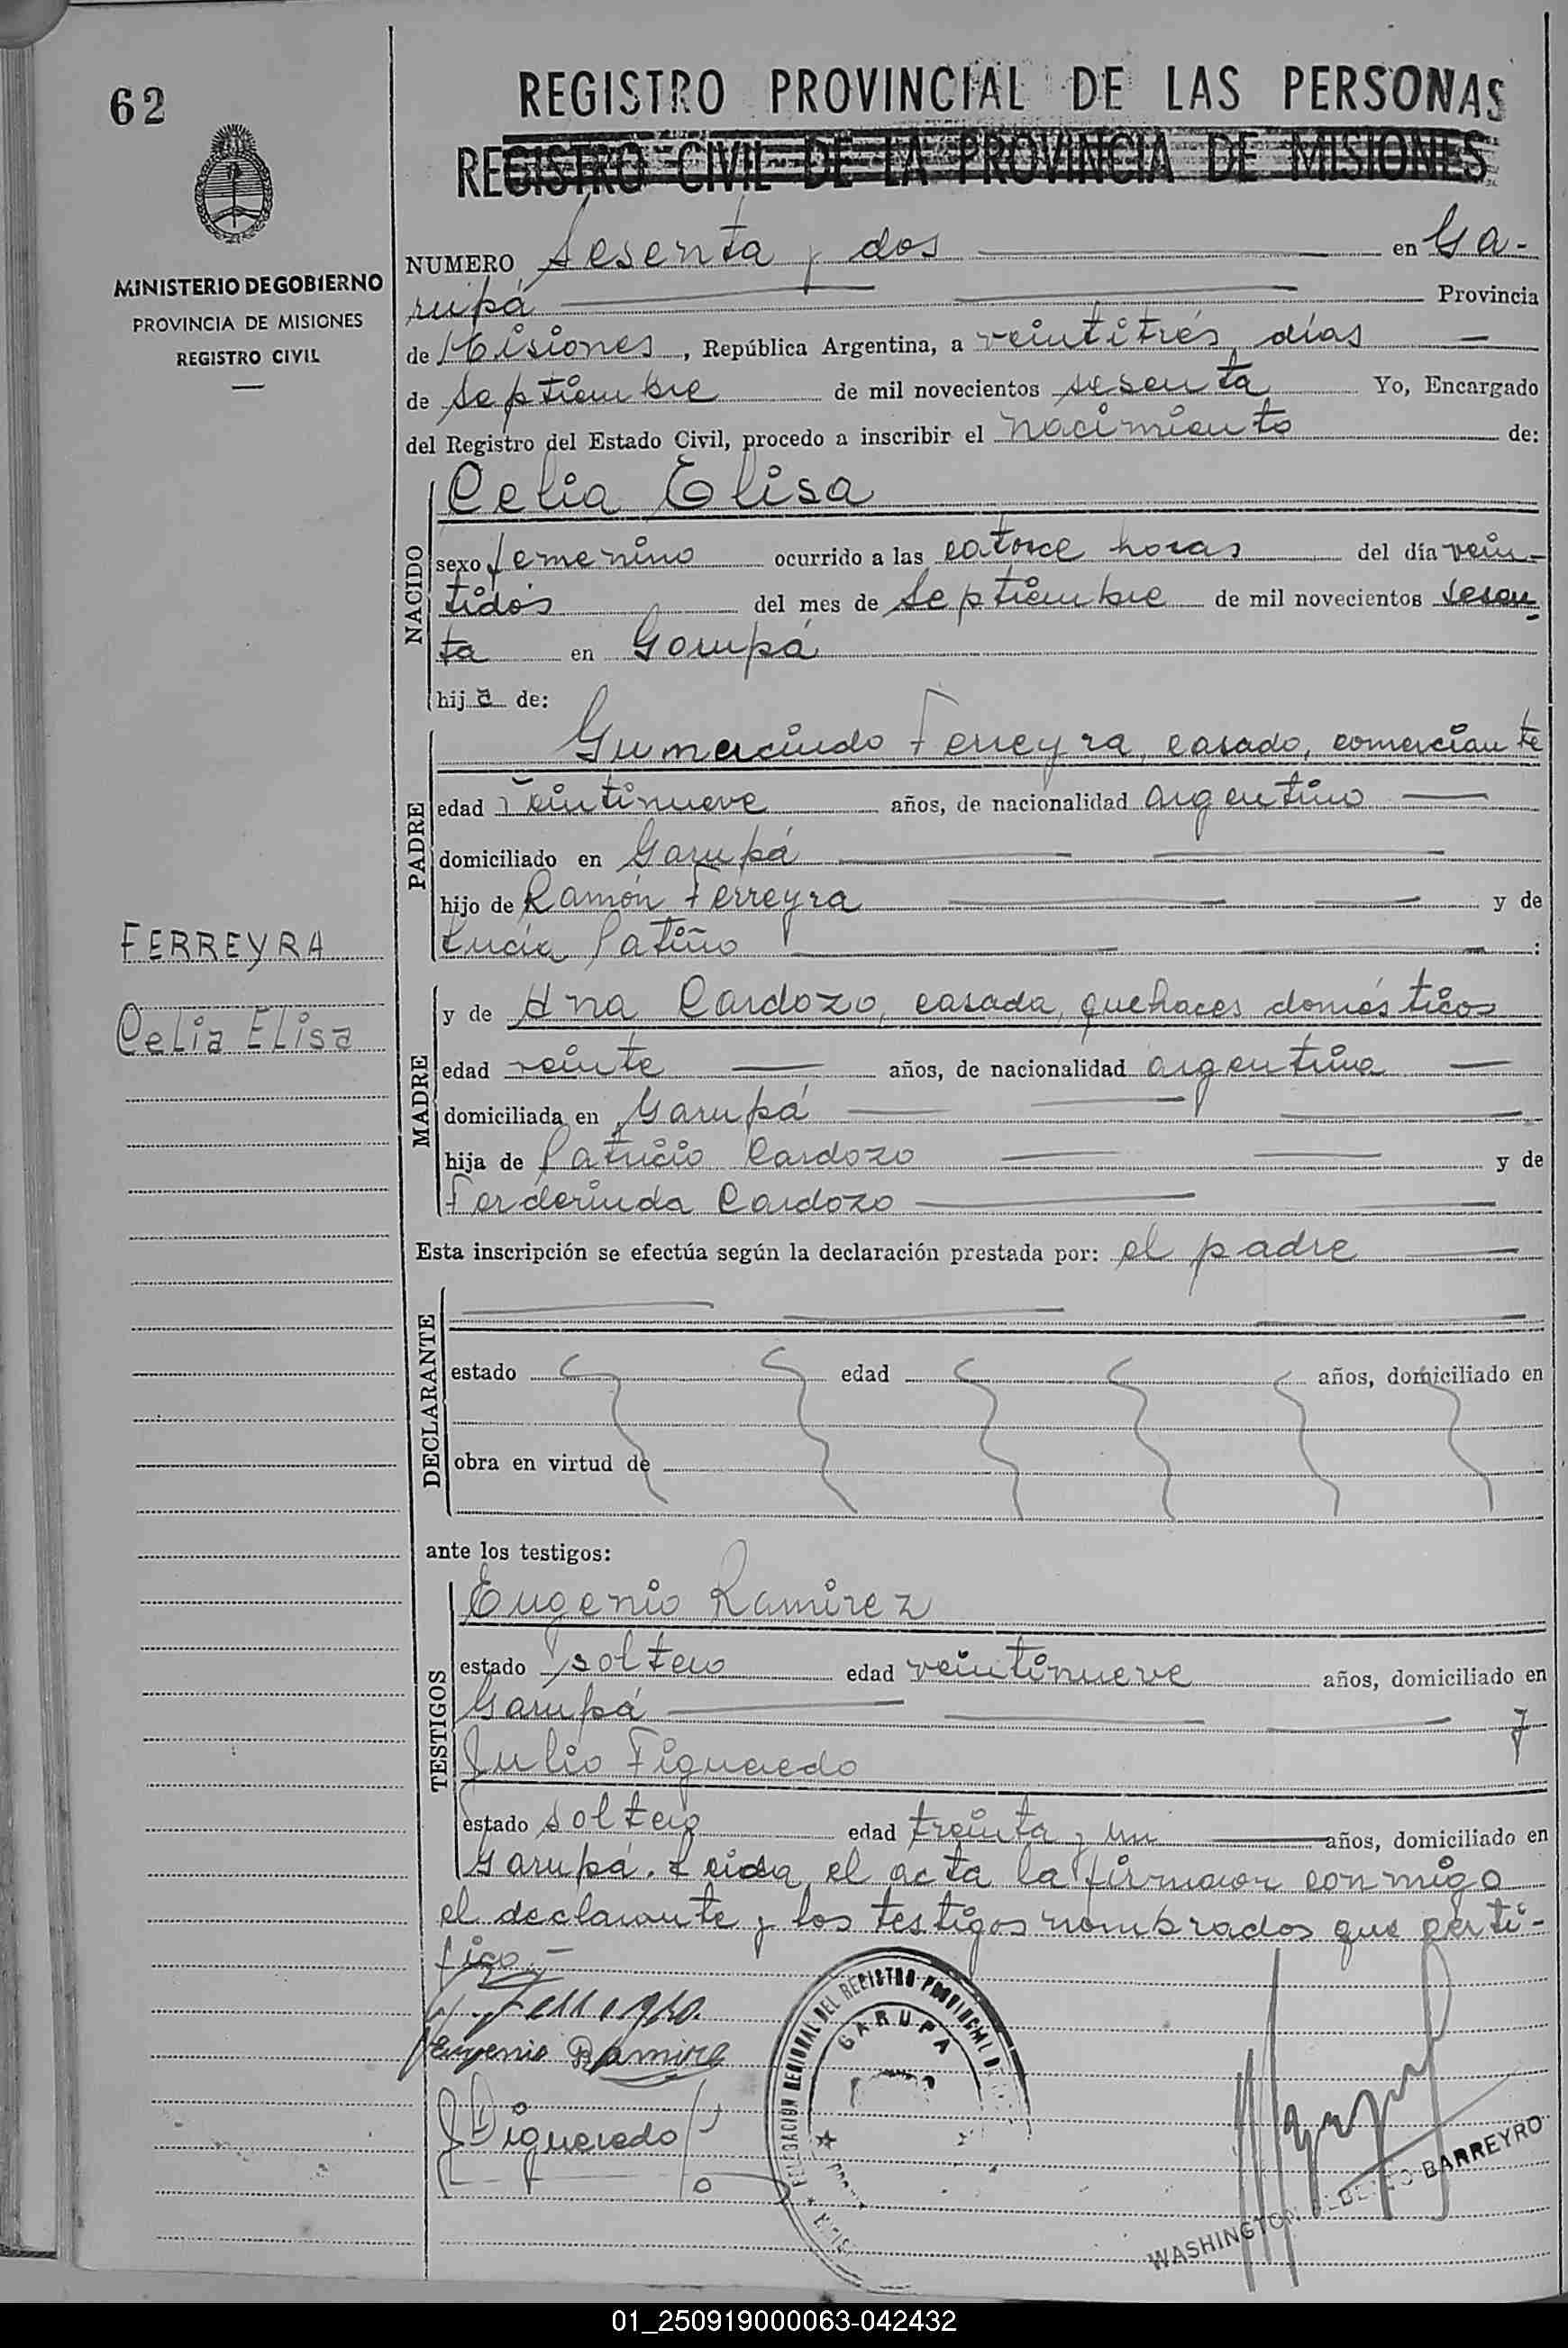 62
MINISTERIO DE GOBIERNO
PROVINCIA DE MISIONES
REGISTRO CIVIL
FERREYRA
Celia Elisa
REGISTRO PROVINCIAL DE LAS PERSONAS
REGISTRO CIVIL DE LA PROVINCIA DE MISIONES
NUMERO Sesenta y dos en Ga-
rupá Provincia
de Misiones, República Argentina, a veintitrés días
de Septiembre de mil novecientos sesenta Yo, Encargado
del Registro del Estado Civil, procedo a inscribir el nacimiento de:
NACIDO
Celia Elisa
sexo femenino ocurrido a las catorce horas del día vein-
tidós del mes de Septiembre de mil novecientos sesen-
ta en Garupá
hija de:
PADRE
Gumercindo Ferreyra, casado, comerciante
edad veintinueve años, de nacionalidad argentino
domiciliado en Garupá
hijo de Ramón Ferreyra y de
Lucía Patiño :
MADRE
y de Ana Cardozo, casada, quehaces domésticos
edad veinte años, de nacionalidad argentina
domiciliada en Garupá
hija de Patricio Cardozo y de
Cardozo
Esta inscripción se efectúa según la declaración prestada por: el padre
DECLARANTE
estado edad años, domiciliado en
obra en virtud de
ante los testigos:
TESTIGOS
Eugenio Ramirez
estado soltero edad veintinueve años, domiciliado en
Garupá y
Julio Figueredo
estado soltero edad treinta y un años, domiciliado en
Garupá. Leida el acta la firmaron conmigo
el declarante y los testigos nombrados que certi-
fico.-
G. Ferreyra
Eugenio Ramirez
J Figueredo
DELEGACION REGIONAL DEL REGISTRO PROVINCIAL D
GARUPA
WASHINGTON BARREYRO
01_250919000063-042432